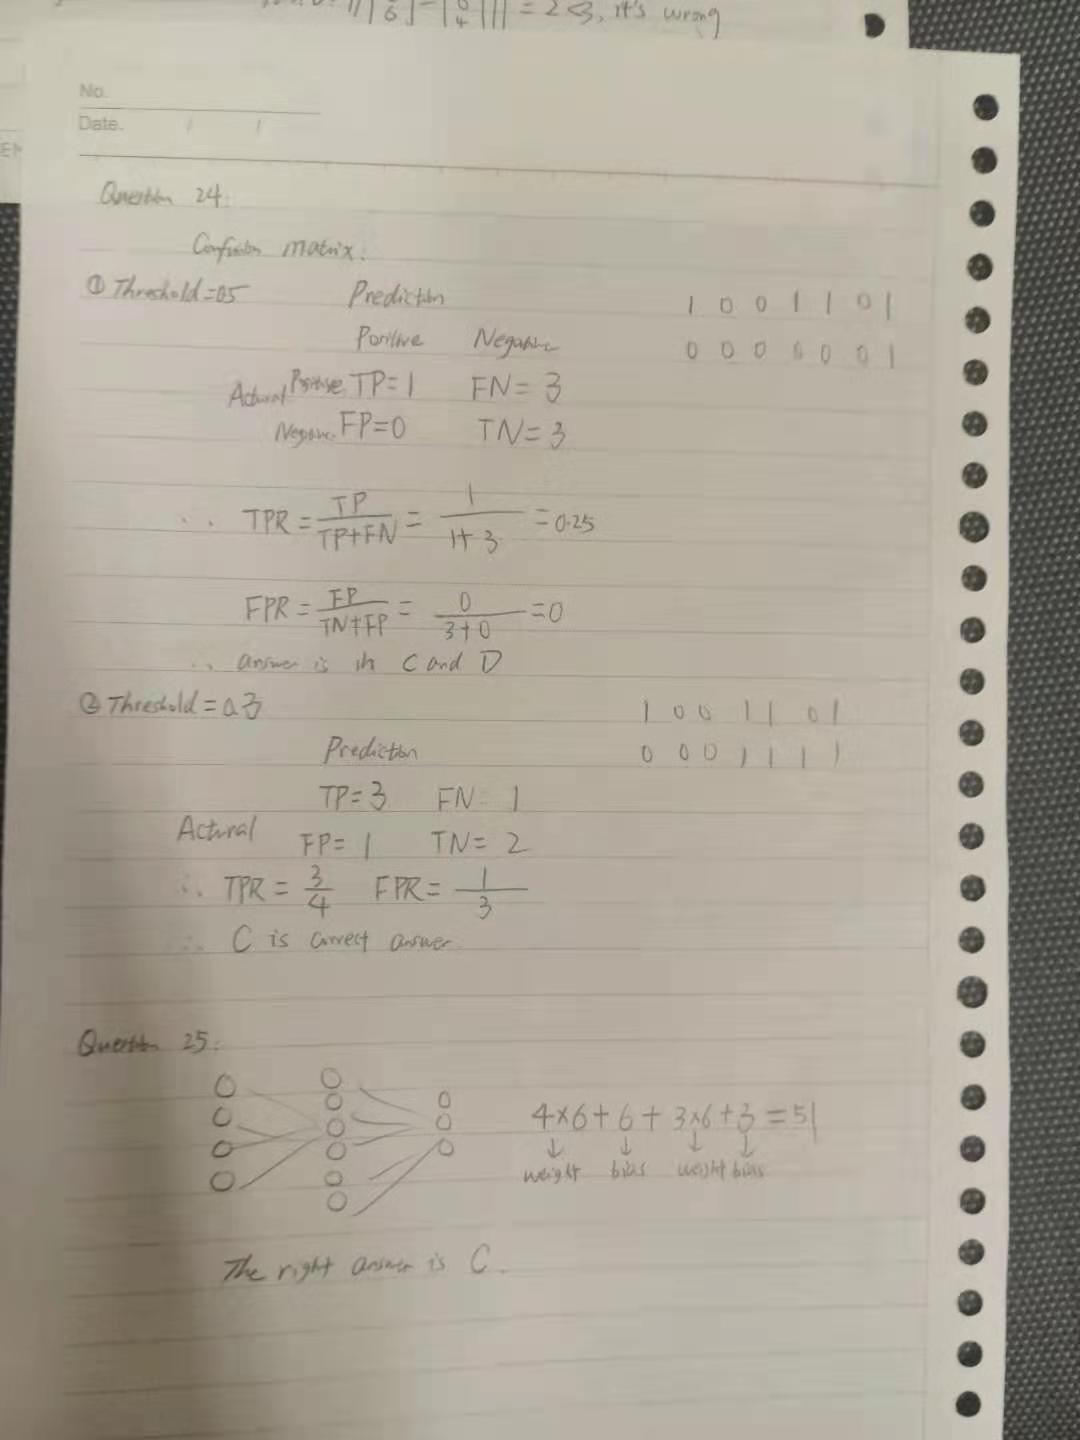 6 4 = 2<3, it's wrong
No.
Date. / /
Question 24:
Confusion matrix:
① Threshold=0.5 Prediction 1 0 0 1 1 0 1
Positive Negative 0 0 0 0 0 0 1
Actural Positive TP=1 FN=3
Negative FP=0 TN=3
∴ TPR = TP/TP+FN = 1/1+3 = 0.25
FPR = FP/TN+FP = 0/3+0 = 0
∴ answer is in C and D
② Threshold = 0.3 1 0 0 1 1 0 1
Prediction 0 0 0 1 1 1 1
TP=3 FN= 1
Actural FP= 1 TN= 2
∴ TPR = 3/4 FPR = 1/3
∴ C is correct answer
Question 25:
4×6+6+3×6+3=51
↓ ↓ ↓ ↓
weight bias weight bias
The right answer is C.